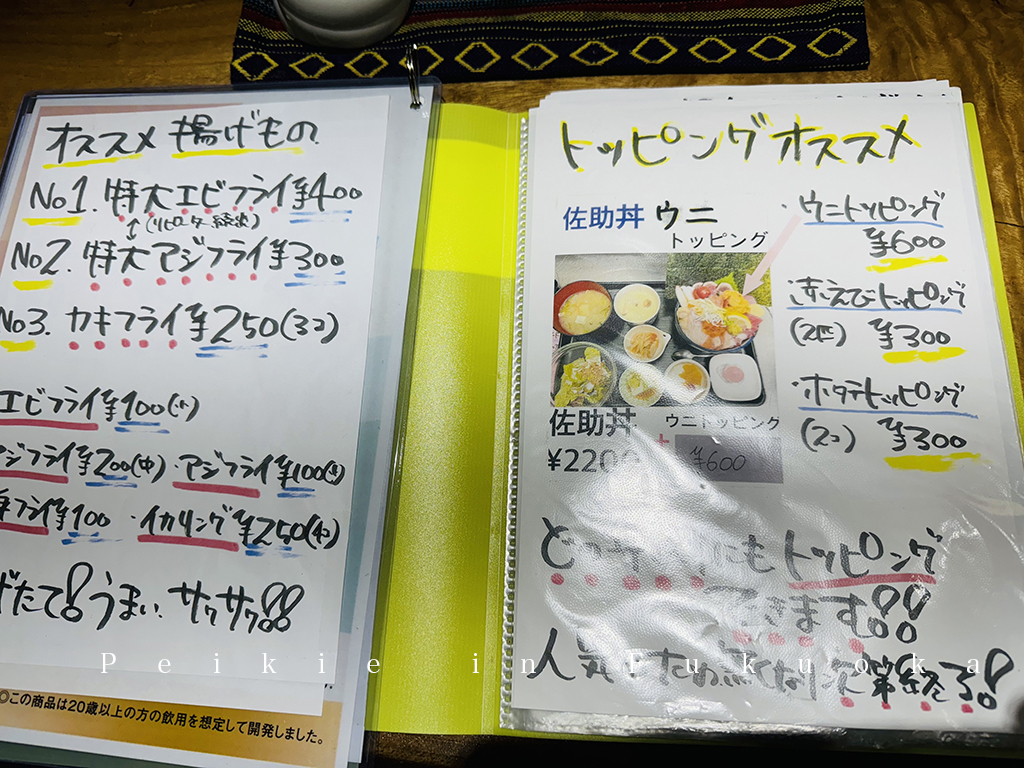 オススメ 揚げもの
No1. 特大エビフライ ¥400
No2. 特大アジフライ ¥300
No3. カキフライ ¥250(3コ)
エビフライ ¥100(小)
アジフライ ¥200(中)・アジフライ ¥100(小)
¥100 ・イカリング ¥250
げたて!うまい サクサク!!
◎この商品は20歳以上の方の飲用を想定して開発しました。
トッピングオススメ
佐助丼 ウニ
トッピング
佐助丼 ウニトッピング
¥2200 + ¥600
・ウニトッピング
¥600
・赤えびトッピング
(2匹) ¥300
・ホタテトッピング
(2コ) ¥300
にもトッピング
できます!!
人気 のため無くなり次第終了!
Peikie in Fukuoka